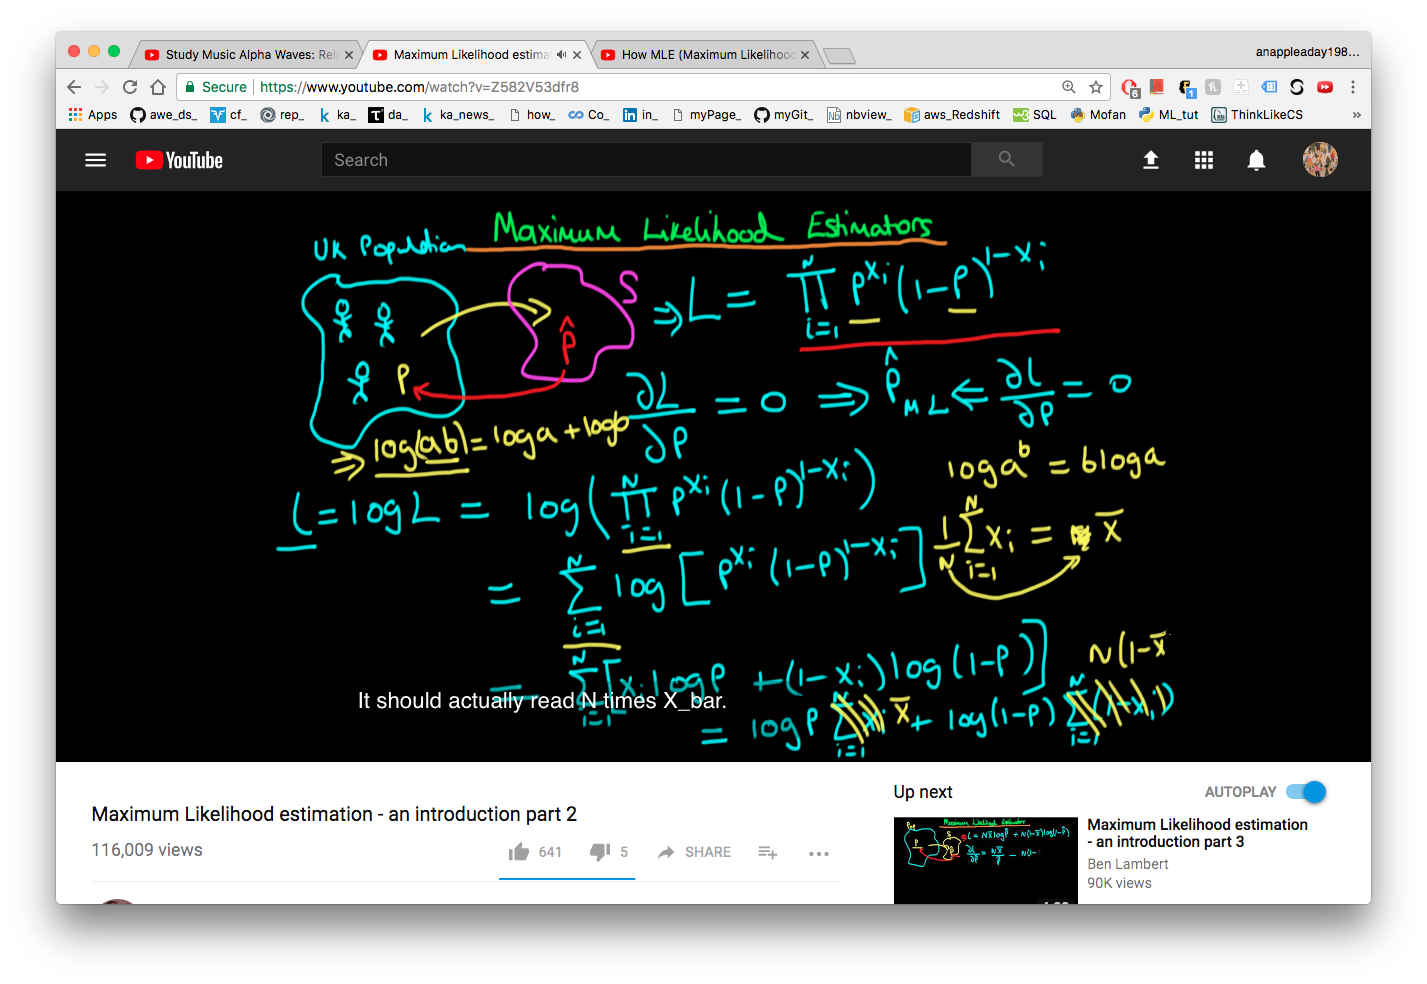 Study Music Alpha Waves: Rela
Maximum Likelihood estima
How MLE (Maximum Likelihood
anappleaday198...
Secure
https://www.youtube.com/watch?v=Z582V53dfr8
6
1
Apps
awe_ds_
cf_
rep_
ka_
da_
ka_news_
how_
Co_
in_
myPage_
myGit_
nbview_
aws_Redshift
SQL
Mofan
ML_tut
ThinkLikeCS
»
YouTube
Search
Maximum Likelihood Estimators
UK Population
S
p̂
P
⇒ L = ∏ᵢ₌₁ᴺ p^xᵢ (1-p)^1-xᵢ
∂L/∂p = 0 ⇒ p̂ ML ← ∂l/∂p = 0
⇒ log(ab) = loga + logb
log a^b = b log a
l = log L = log(∏ᵢ₌₁ᴺ p^xᵢ (1-p)^1-xᵢ)
1/N ∑ᵢ₌₁ᴺ xᵢ = x̄
= ∑ᵢ₌₁ᴺ log [p^xᵢ (1-p)^1-xᵢ]
= ∑ᵢ₌₁ᴺ [xᵢ log p + (1-xᵢ) log(1-p)]
N(1-x̄
It should actually read N times X_bar.
= log p ∑ᵢ₌₁ᴺ xᵢ x̄ + log(1-p) ∑ᵢ₌₁ᴺ (1-xᵢ)
Maximum Likelihood estimation - an introduction part 2
116,009 views
641
5
SHARE
Up next
AUTOPLAY
Maximum Likelihood estimation
- an introduction part 3
Ben Lambert
90K views